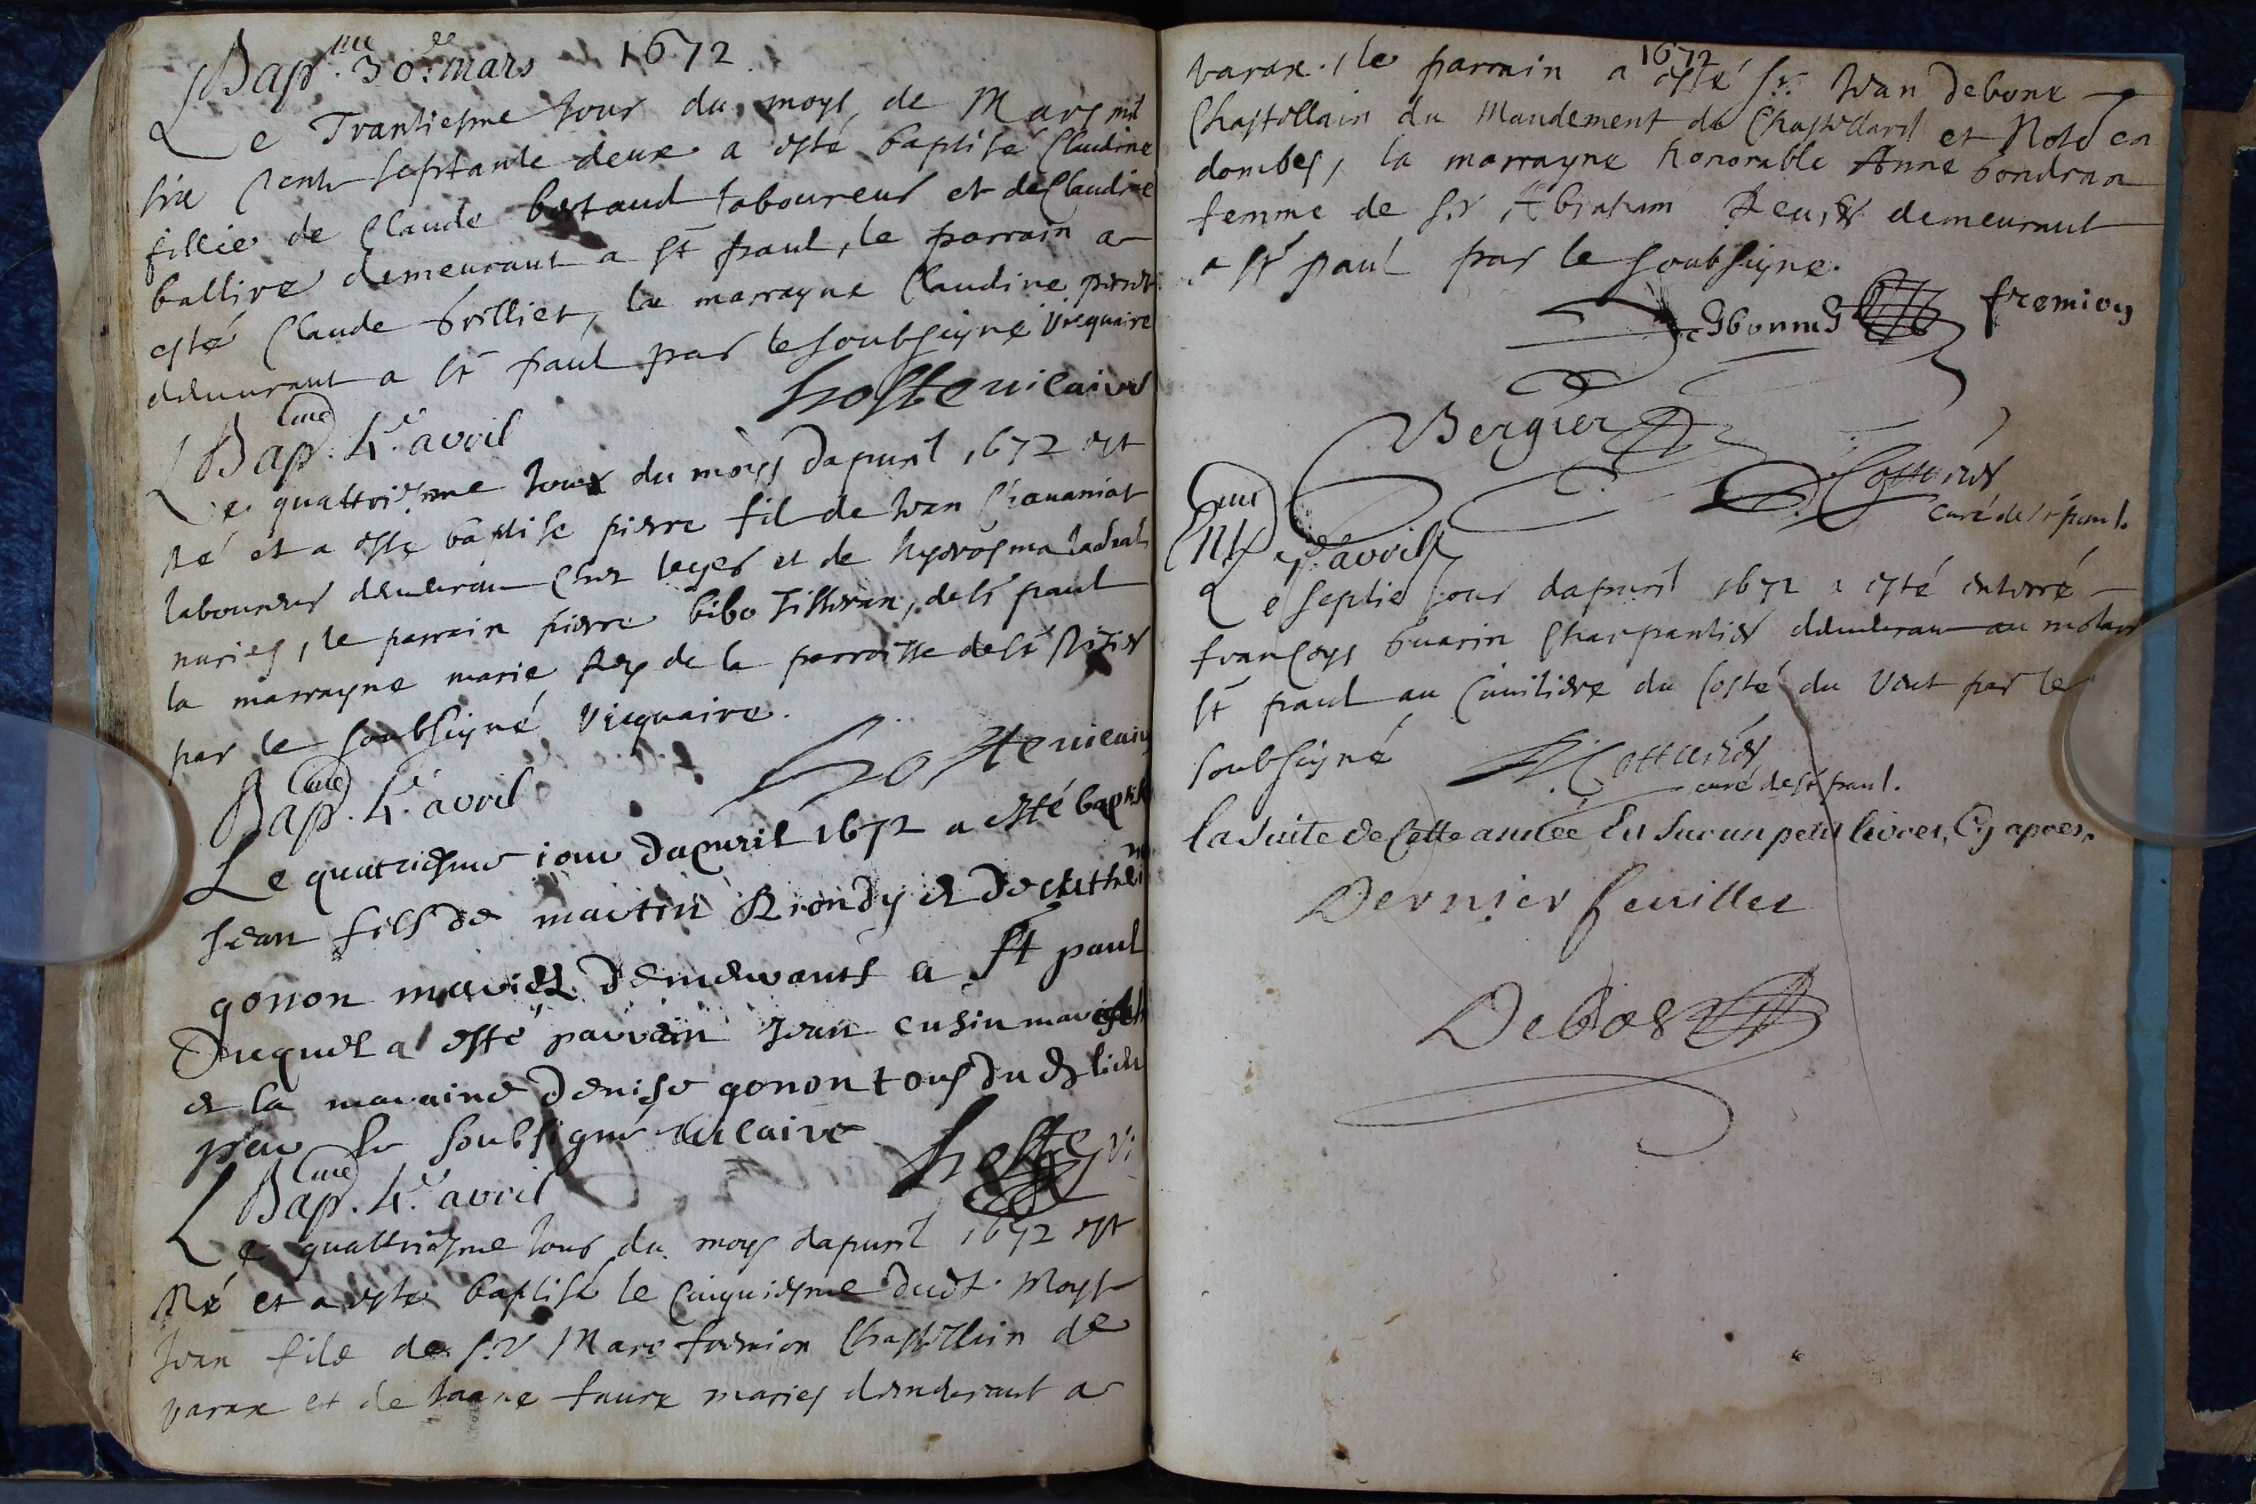 Bap.me 30.e mars 1672
Le Trantiesme Jour du moys de Mars mil
six Cents septante deux a esté baptisé Claudine
fillie de Claude bertaud laboureur et de Claudine
ballire demeurant a St paul, le parrain a
esté Claude brilliet, la marrayne Claudine
demeurant a St paul par le soubsigne Vicquaire
hoste vicaire
Bap. 4.e avril
Le quattriesme Jour du moys dapuril 1672 est
Né et a esté baptise pierre fil de Jean Chavaniat
laboureur demeurant Chez leyes et de
maries, le parrain pierre bibo Tisseran, de St paul
la marrayne marie Rey de la parroisse de St Nizier
par le soubsigné Vicquaire.
hoste vicaire
Bap. 4.e avril
Le quatriesme iour dapuril 1672 a esté baptisé
Jean fils de martin Riondy et de
gonon mariez demeurants a St paul
Duquel a esté parrain Jean cusin
et la maraine Denise gonon tous du dt lieu
par le soubsigné vicaire
hoste vi
Bap. 4.e avril
Le quattriesme Jour du moys dapuril 1672 est
Né et a este baptisé le Cinquiesme dudt. Moys
Jean fils de Sr Marc fremion Chastellain de
varax et de faure maries demeurant a
1672
varax. le parrain a esté Sr. Jean debone
Chastellain du Mandement du Chastellard et Note en
dombes, la marrayne honorable Anne bondran
femme de Sr Abraham demeurant
a St paul par le soubsigne.
Debonne fremion
Bergier
Cottarder
curé de St paul.
7.e avril
Le septie Jour dapuril 1672 a esté enterré
françoys Guarin Charpantier demeurant au molard
St paul au Cimitiere du Costé du Vent par le
soubsigné
Cottarder
curé de St paul.
la Suite de Cette année Est Sur un petit livres, Cy apres.
Dernier feuillet
Debost